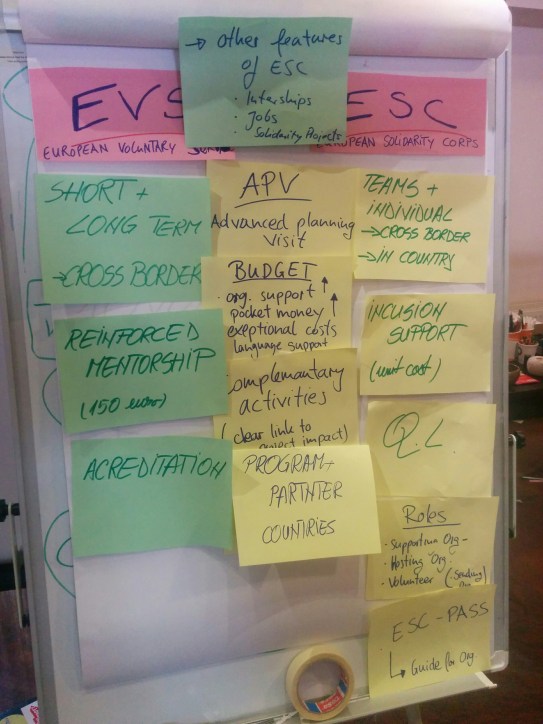 → other features
of ESC
· Interships
· Jobs
· Solidarity Projects
EVS
EUROPEAN VOLUNTARY
ESC
EUROPEAN SOLIDARITY CORPS
SHORT +
LONG TERM
→ CROSS BORDER
REINFORCED
MENTORSHIP
(150 euros)
ACREDITATION
APV
Advanced planning
visit
BUDGET
· org. support ↑
pocket money ↑
exeptional costs
language support
omplementary
activities
(clear link to
project impact)
PROGRAM+
PARTNTER
COUNTRIES
TEAMS +
INDIVIDUAL
→ CROSS BORDER
→ IN COUNTRY
INCUSION
SUPPORT
(unit cost)
Q.L.
Roles
· Supporting Org -
· Hosting Org
· Volunteer (Sending
ESC-PASS
↳ Guide for Org.